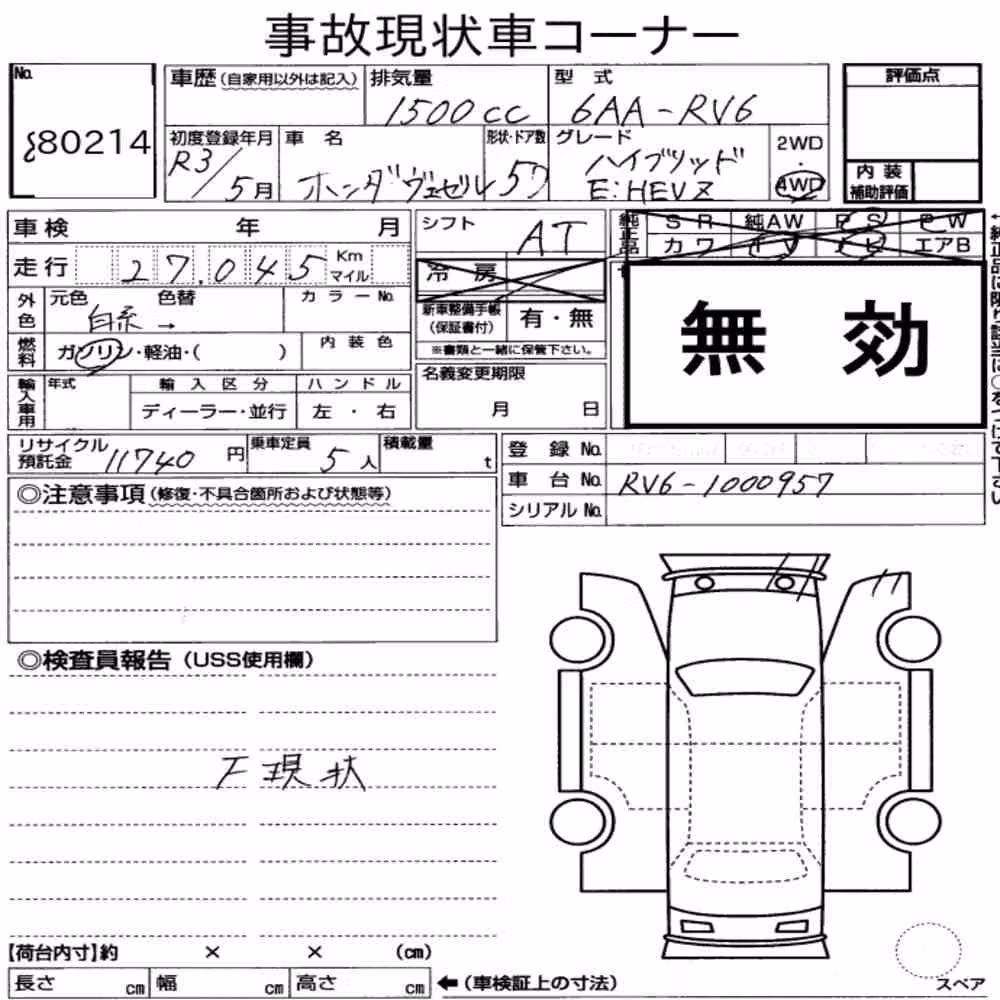 事故現状車コーナー
No. 80214
車歴(自家用以外は記入)
排気量 1500cc
型式 6AA-RV6
評価点
初度登録年月 R3/5月
車名 ホンダヴェゼル
形状・ドア数 5D
グレード ハイブリッド e:HEV Z
2WD・4WD
内装補助評価
車検 年 月
シフト AT
純正品 SR 純AW PS PW
カワ TV ナビ エアB
走行 27,045 Km マイル
冷房
外色 元色 白系→ 色替 カラーNo.
新車整備手帳(保証書付) 有・無
※書類と一緒に保管下さい。
無効
燃料 ガソリン・軽油・( ) 内装色
名義変更期限 月 日
輸入車用 年式 輸入区分 ハンドル
ディーラー・並行 左・右
リサイクル預託金 11740円
乗車定員 5人
積載量 t
登録No.
車台No. RV6-1000957
シリアルNo.
◎注意事項(修復・不具合箇所および状態等)
◎検査員報告(USS使用欄)
下現状
【荷台内寸】約 × × (cm)
長さ cm 幅 cm 高さ cm ←(車検証上の寸法)
スペア